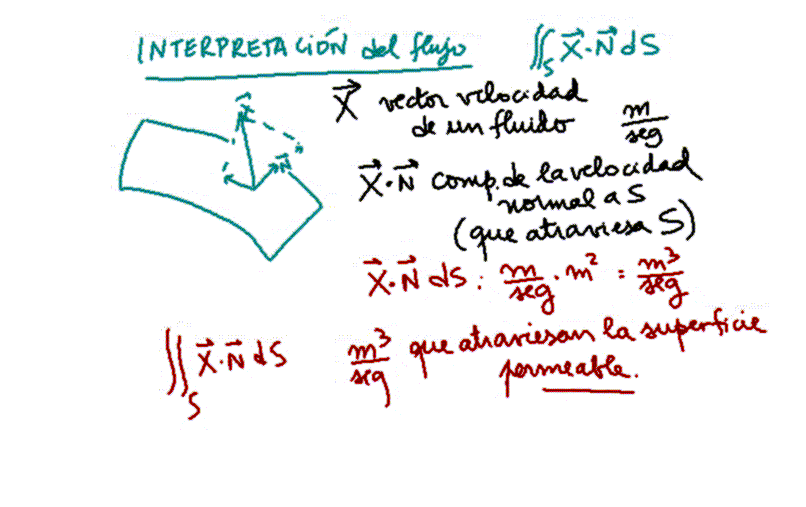 INTERPRETACIÓN del flujo ∬_S X⃗·N⃗ dS
X⃗ vector velocidad
de un fluido m/seg
X⃗
N⃗
X⃗·N⃗ comp. de la velocidad
normal a S
(que atraviesa S)
X⃗·N⃗ dS : m/seg · m² = m³/seg
∬_S X⃗·N⃗ dS m³/seg que atraviesan la superficie
permeable.